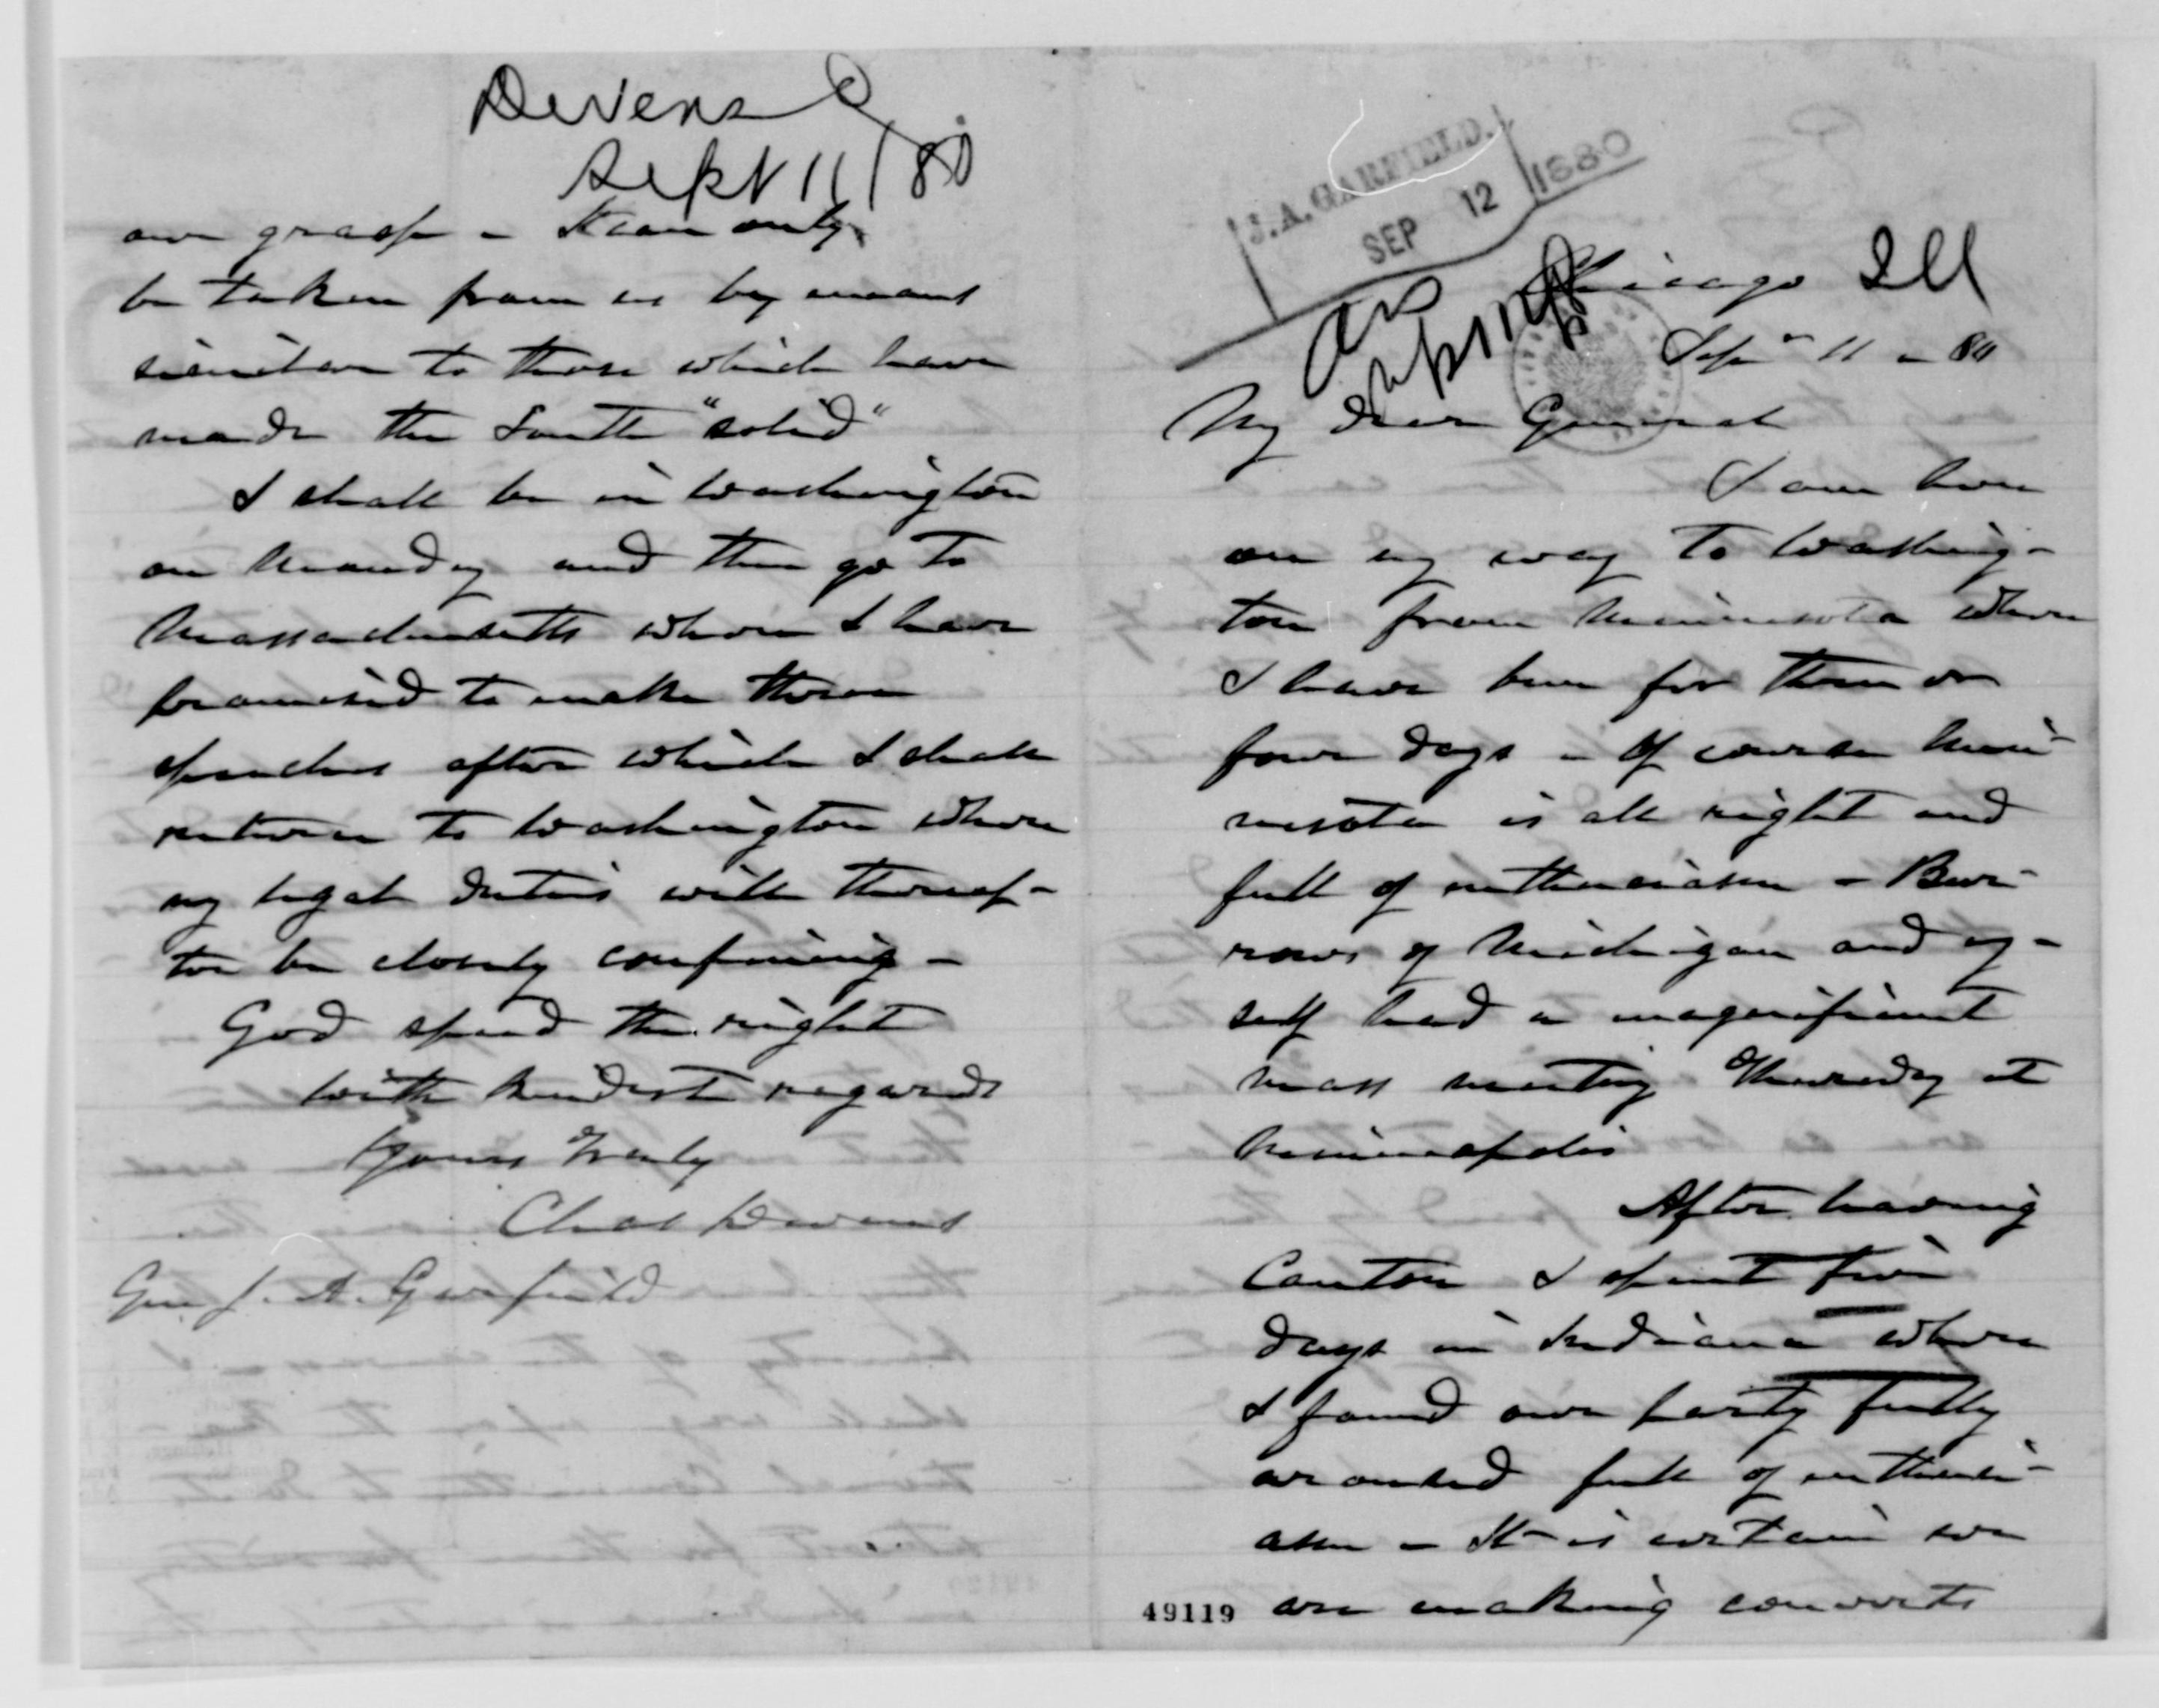 Devens C
Sept 11/80
our grasp - It can only
be taken from us by means
similar to those which have
made the South "solid"
I shall be in Washington
on Monday and then go to
Massachusetts where I have
promised to make three
speeches after which I shall
return to Washington where
my legal duties will thereaf-
ter be closely confining -
God speed the right
With kindest regards
Yours Truly
Chas Devens
Gen J. A. Garfield
J. A. GARFIELD.
SEP 12 1880
Chicago Ill
Sep 11 - 80
My dear General
I am here
on my way to Washing-
ton from Minnesota where
I have been for three or
four days - Of course Min-
nesota is all right and
full of enthusiasm - Bur-
rows of Michigan and my-
self had a magnificent
mass meeting Thursday at
Minneapolis
After leaving
Canton I spent five
days in Indiana where
I found our party fully
aroused full of enthusi-
asm - It is certain we
are making converts
49119